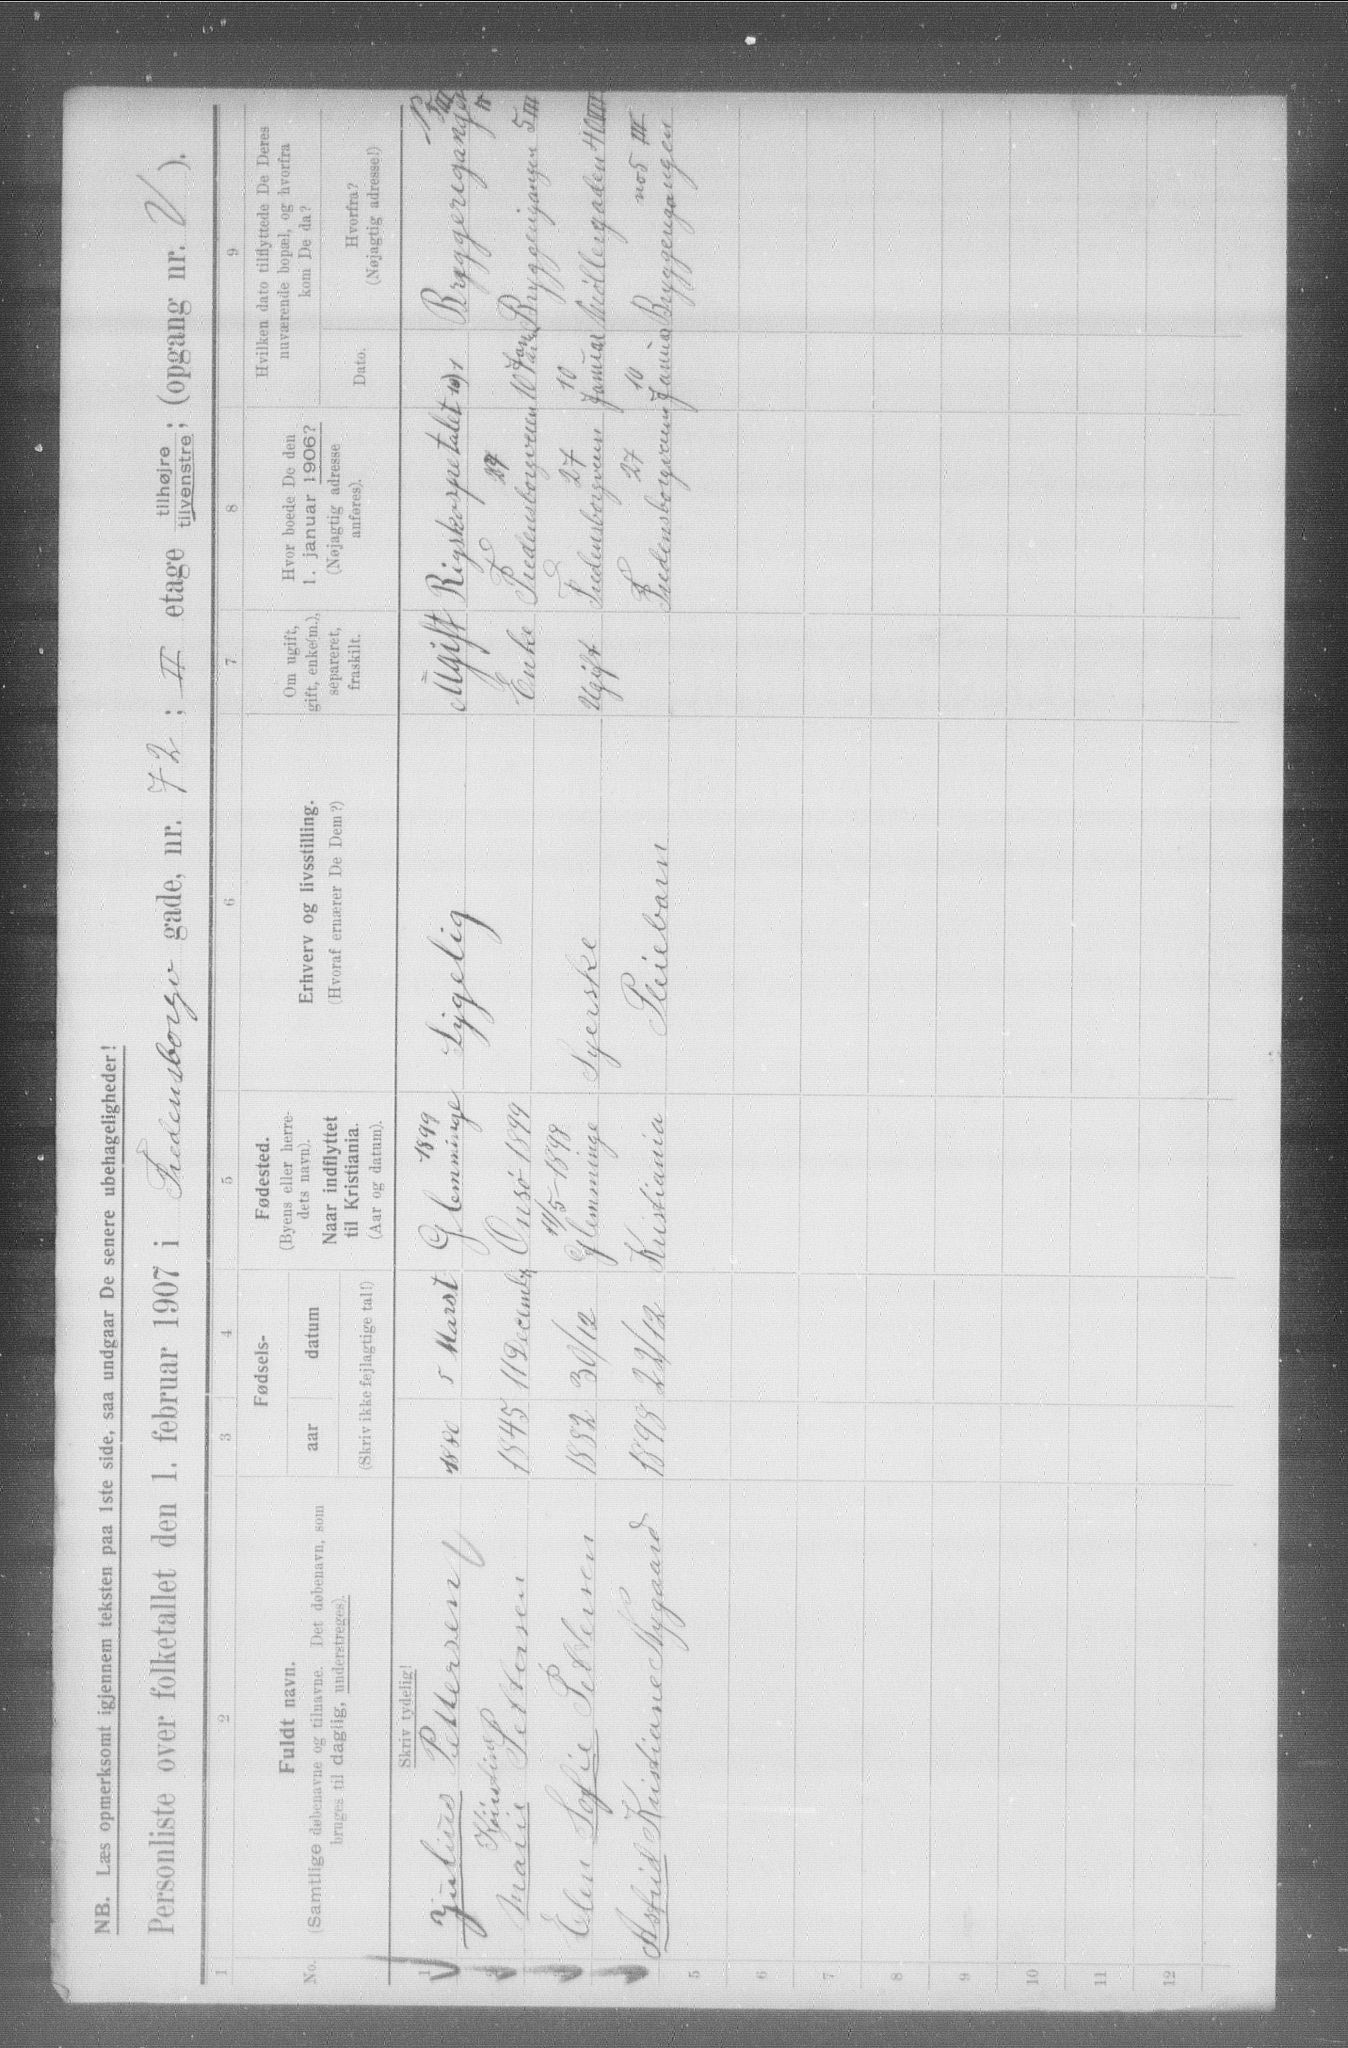 NB. Læs opmerksomt igjennem teksten paa 1ste side, saa undgaar De senere ubehageligheder!
Personliste over folketallet den 1. februar 1907 i Fredensborgv gade, nr. 72; II etage tilhøjre tilvenstre; (opgang nr. V).
1 2 3 4 5 6 7 8 9
No.
Fuldt navn.
(Samtlige døbenavne og tilnavne. Det døbenavn, som
bruges til daglig, understreges).
Fødsels-
aar datum
(Skriv ikke fejlagtige tal!)
Fødested.
(Byens eller herre-
dets navn).
Naar indflyttet
til Kristiania.
(Aar og datum).
Erhverv og livsstilling.
(Hvoraf ernærer De Dem?)
Om ugift,
gift, enke(m.),
separeret,
fraskilt.
Hvor boede De den
1. januar 1906?
(Nøjagtig adresse
anføres).
Hvilken dato tilflyttede De Deres
nuværende bopæl, og hvorfra
kom De da?
Dato.
Hvorfra?
(Nøjagtig adresse!)
Skriv tydelig!
1899
1 Julius Pettersen 1880 5 Marst Glemminge Sygelig Ugift Rigshospetalet 10/1 Bryggerigangen 5 III
Kristine 27
2 Marie Pettersen 1845 11 December Onsø 1899 Enke Fredensborgveien 10 Jan Bryggerigangen 5 III
11/5-1898 27 10
3 Elen Sofie Pettersen 1882 30/12 Glemminge Syerske Ugift Fredensborgveien Januar Møllergaden 40 III
27 10 no 5 III
4 Astrid Kristiane Nygaard 1898 22/12 Kristiania Pleiebarn Fredensborgveien Januar Bryggerigangen
5
6
7
8
9
10
11
12